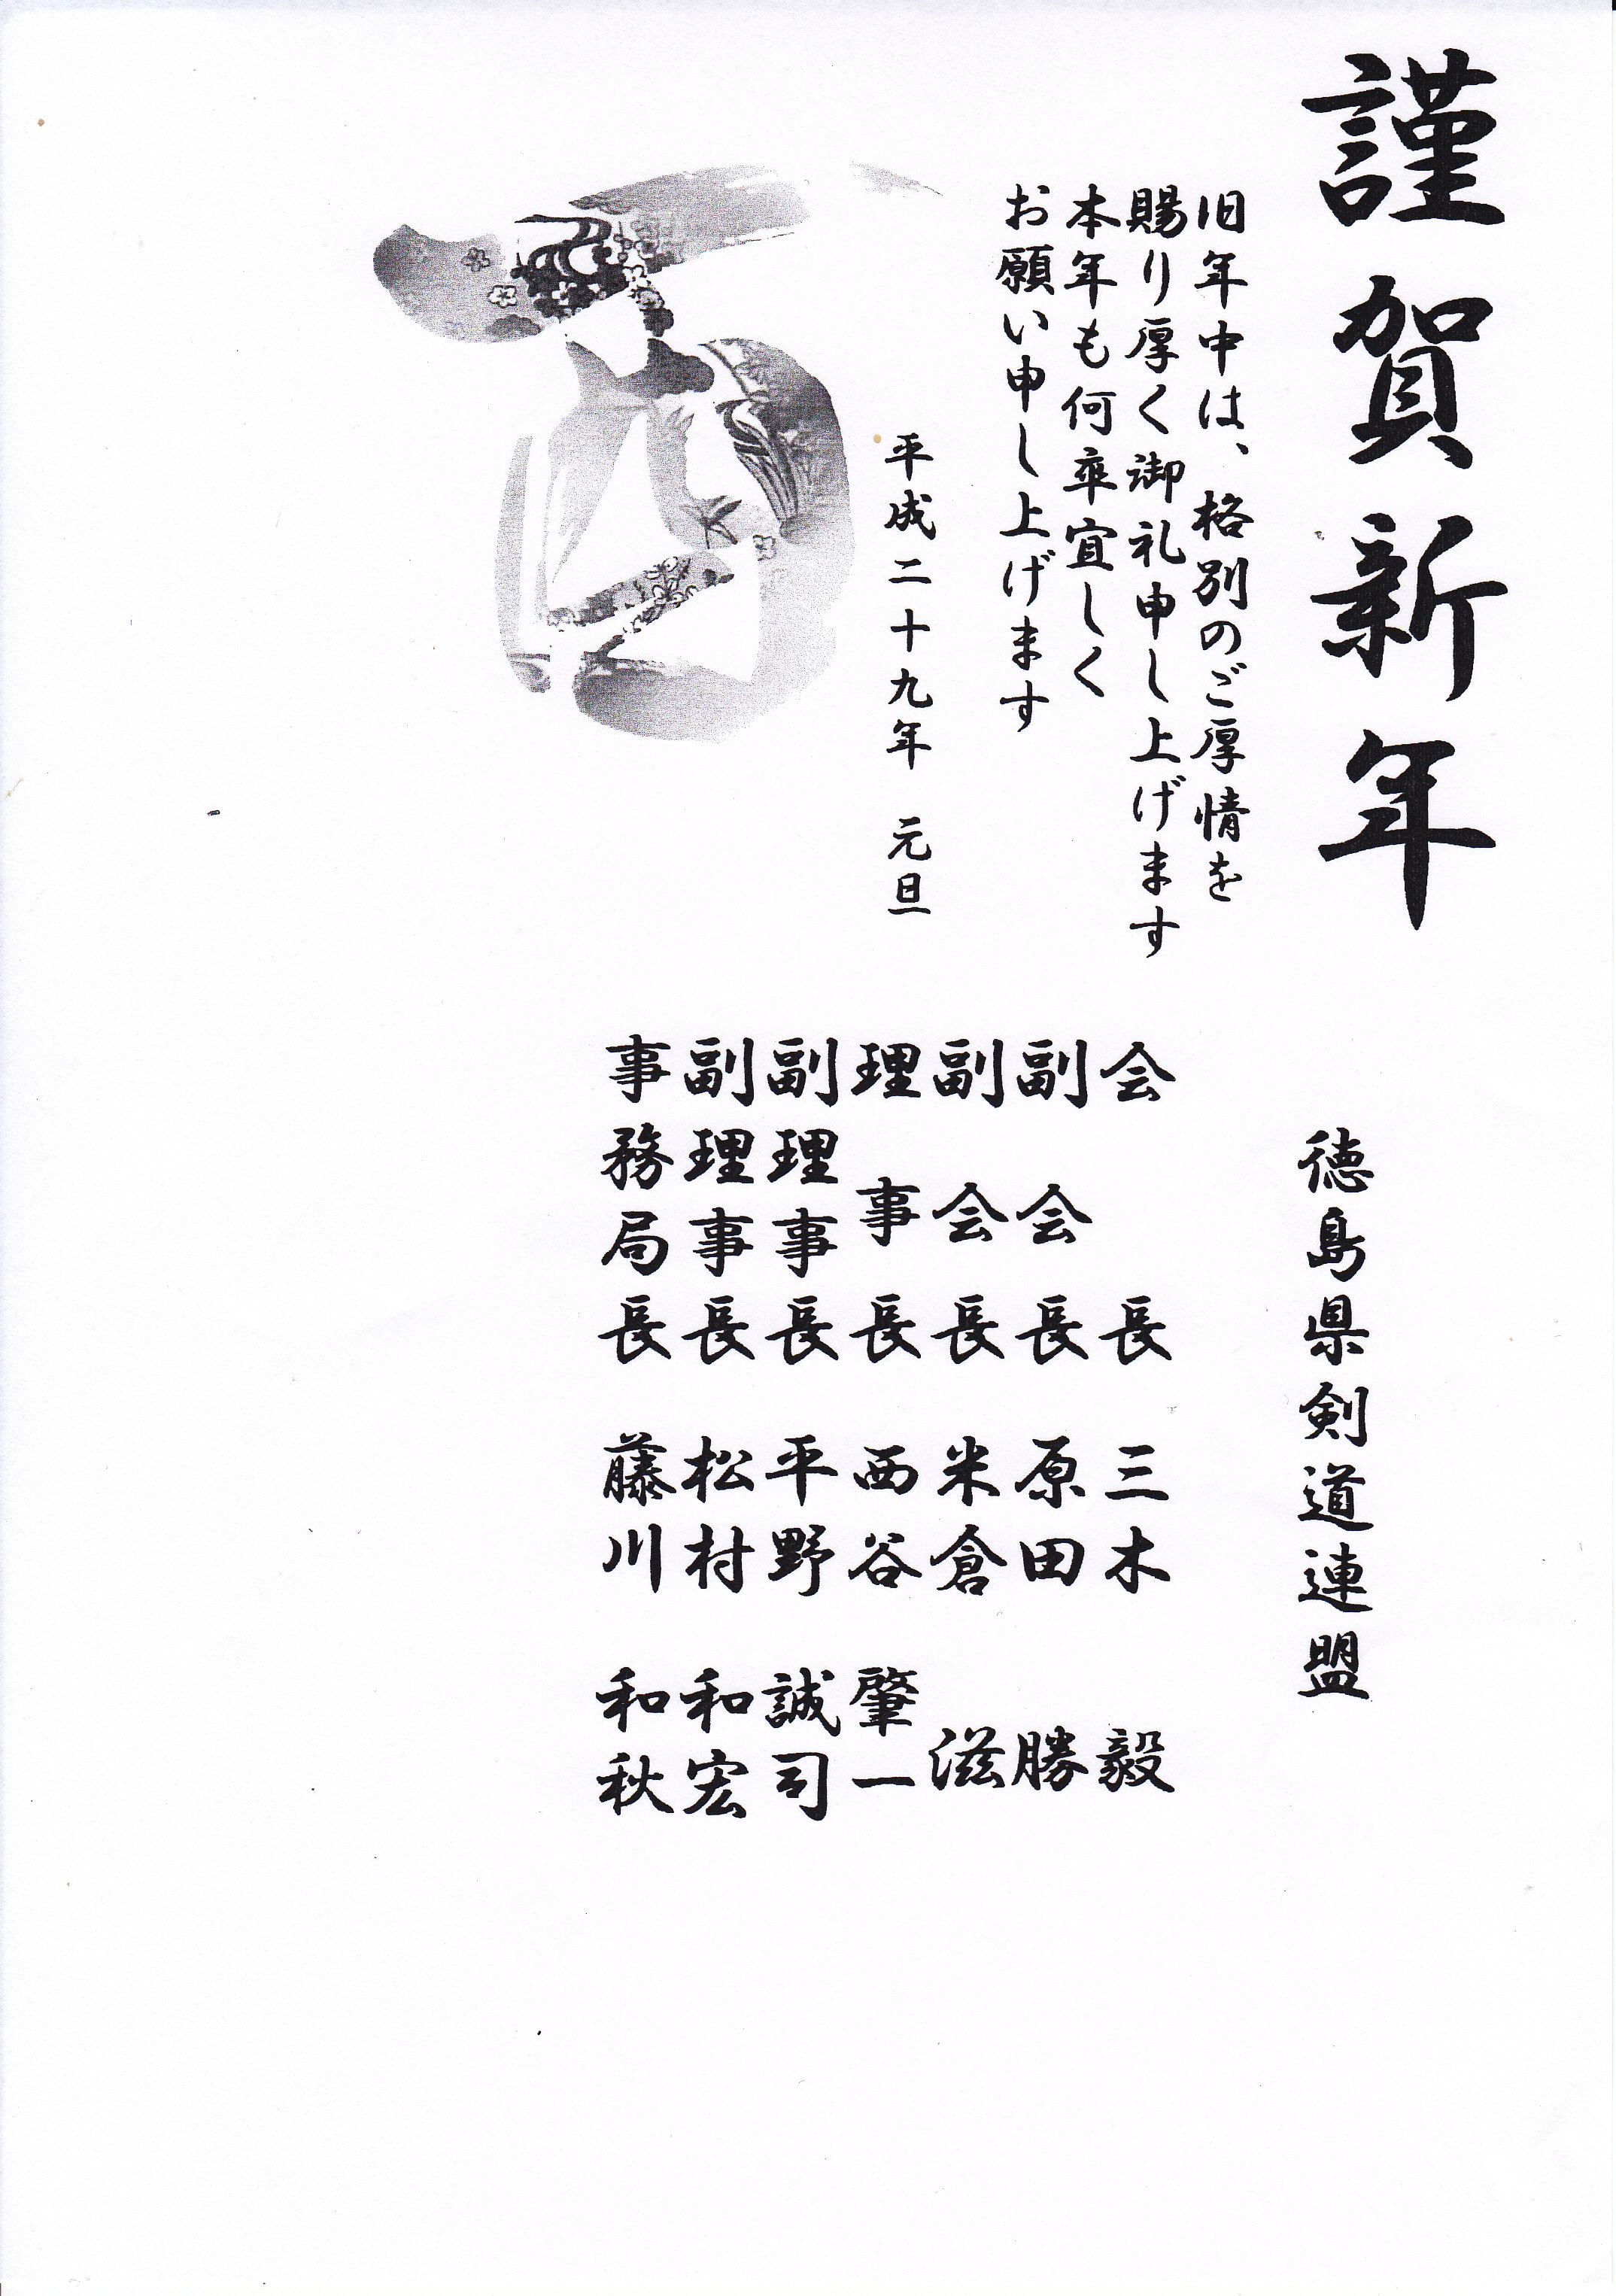 謹賀新年
旧年中は、格別のご厚情を
賜り厚く御礼申し上げます
本年も何卒宜しく
お願い申し上げます
平成二十九年 元旦
酉
徳島県剣道連盟
会長 三木 毅
副会長 原田 勝
副会長 米倉 滋
理事長 西谷 肇一
副理事長 平野 誠司
副理事長 松村 和宏
事務局長 藤川 和秋